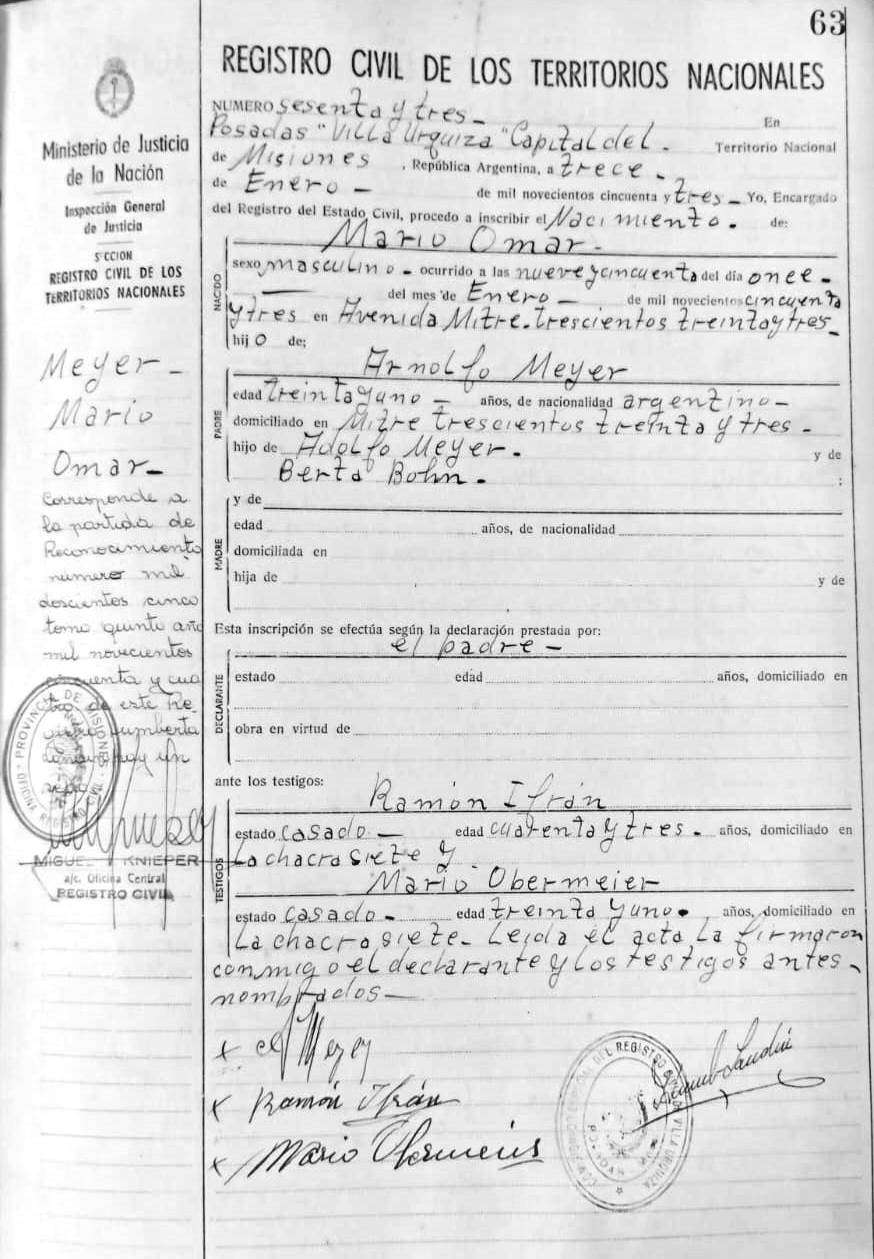 63
REGISTRO CIVIL DE LOS TERRITORIOS NACIONALES
Ministerio de Justicia
de la Nación
Inspección General
de Justicia
S CCION
REGISTRO CIVIL DE LOS
TERRITORIOS NACIONALES
Meyer-
Mario
Omar-
Corresponde a
la partida de
Reconocimiento
numero mil
doscientos cinco
tomo quinto año
mil novecientos
cincuenta y cua
tro de este Re-
MIGUEL KNIEPER
a/c. Oficina Central
REGISTRO CIVIL
NUMERO sesenta y tres- En
Posadas "Villa Urquiza" Capital del. Territorio Nacional
de Misiones, República Argentina, a trece.
de Enero- de mil novecientos cincuenta y tres- Yo, Encargado
del Registro del Estado Civil, procedo a inscribir el Nacimiento. de:
NACIDO
Mario Omar-
sexo masculino- ocurrido a las nueve y cincuenta del día once-
del mes de Enero- de mil novecientos cincuenta
y tres en Avenida Mitre. trescientos treinta y tres-
hijo de;
PADRE
Arnolfo Meyer
edad treinta y uno- años, de nacionalidad argentino-
domiciliado en Mitre trescientos treinta y tres-
hijo de Adolfo Meyer. y de
Berta Bohn. ;
MADRE
y de
edad años, de nacionalidad
domiciliada en
hija de y de
Esta inscripción se efectúa según la declaración prestada por:
el padre-
DECLARANTE
estado edad años, domiciliado en
obra en virtud de
ante los testigos:
TESTIGOS
Ramón Ifrán
estado casado- edad cuarenta y tres- años, domiciliado en
La chacra siete y
Mario Obermeier
estado casado- edad treinta y uno. años, domiciliado en
La chacra siete- Leida el acta la firmaron
conmigo el declarante y los testigos antes-
nombrados-
x Meyer
x Ramón Ifrán
x Mario Obermeier
PROVINCIA DE MISIONES
DEL REGISTRO CIVIL DE VILLA URQUIZA